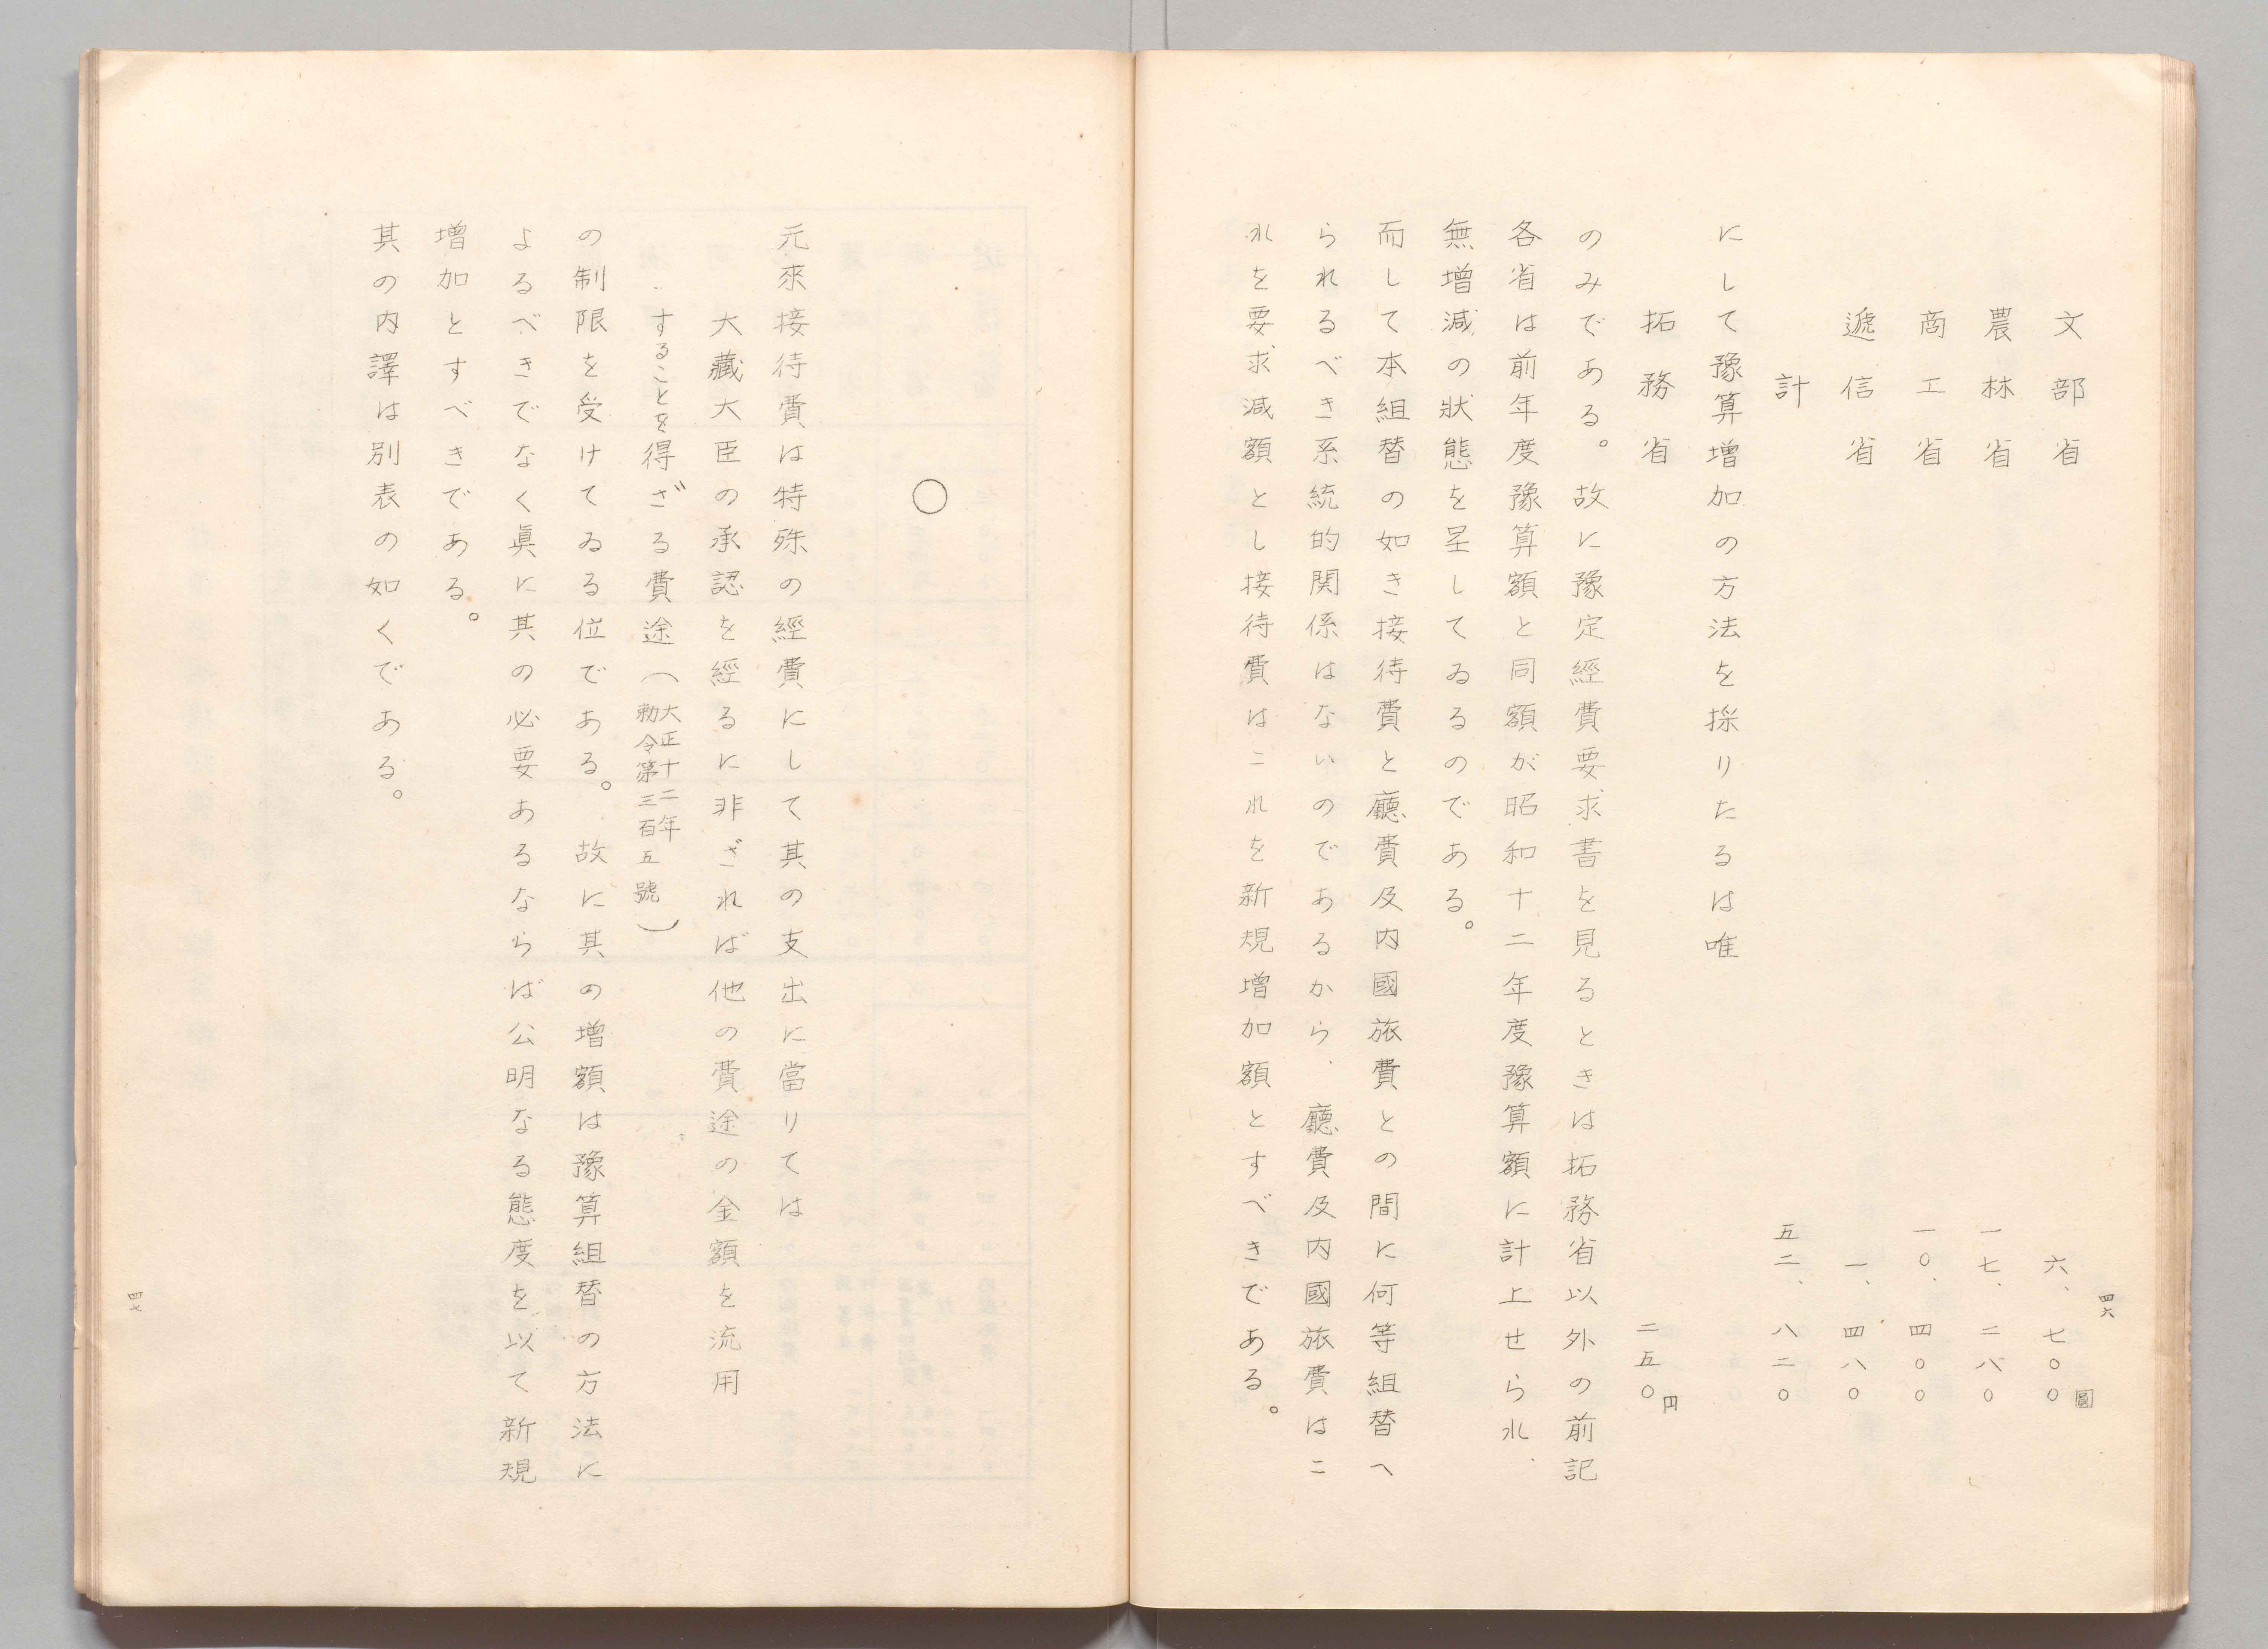 四六
文部省 六、七〇〇圓
農林省 一七、二八〇
商工省 一〇、四〇〇
遞信省 一、四八〇
計 五二、八二〇
にして豫算增加の方法を採りたるは唯
拓務省 二五〇円
のみである。故に豫定經費要求書を見るときは拓務省以外の前記
各省は前年度豫算額と同額が昭和十二年度豫算額に計上せられ、
無增減の狀態を呈してゐるのである。
而して本組替の如き接待費と廳費及內國旅費との間に何等組替へ
られるべき系統的関係はないのであるから、廳費及內國旅費はこ
れを要求減額とし接待費はこれを新規增加額とすべきである。
〇
元來接待費は特殊の經費にして其の支出に當りては
大藏大臣の承認を經るに非ざれば他の費途の金額を流用
することを得ざる費途（大正十二年勅令第三百五號）
の制限を受けてゐる位である。故に其の增額は豫算組替の方法に
よるべきでなく眞に其の必要あるならば公明なる態度を以て新規
增加とすべきである。
其の內譯は別表の如くである。
四七